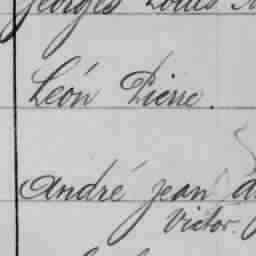 Georges Louis
Léon Pierre.
André Jean
Victor.